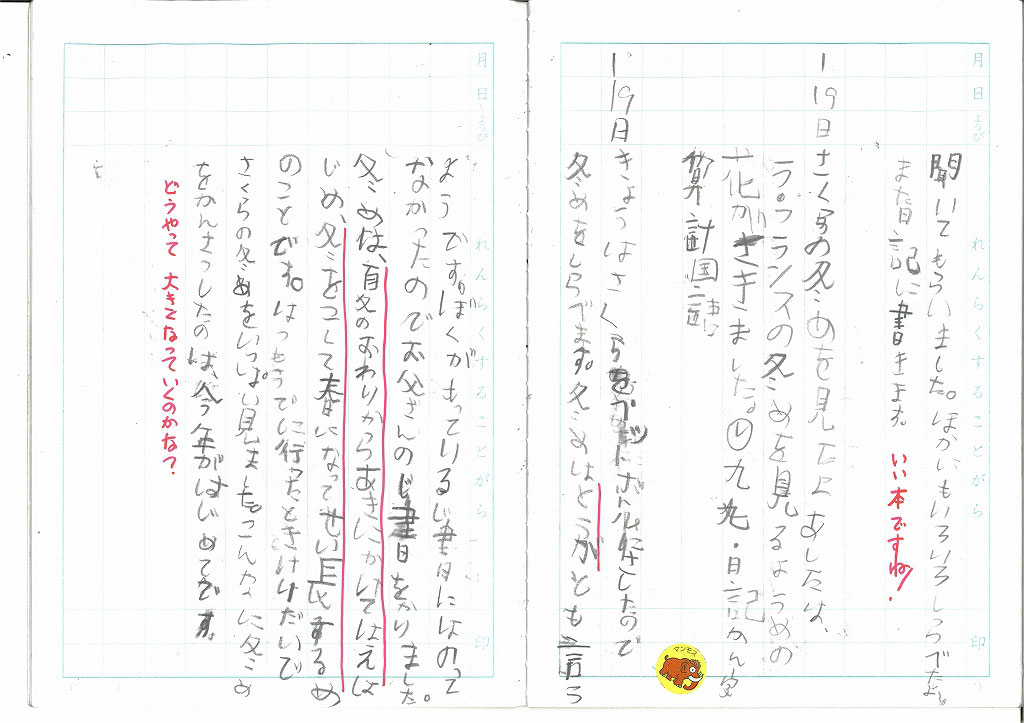 月日よび れんらくすることがら 印
聞いてもらいました。ほかにもいろいろしらべたよ。
また日記に書きます。 いい本ですね!
1 19日さくらの冬めを見たよ あしたは、
ラ・フランスの冬めを見るようめの
花がさきました。レ九九・日記かん字
算計国語
1 19日きょうはさくら
冬めをしらべます。冬めはとうがとも言う
マンモス
ようです。ぼくがもっているじ書にはのって
なかったのでお父さんのじ書をかりました。
冬めは、夏のおわりからあきにかけてはえは
じめ、冬をこして春になってせい長するめ
のことです。はつもうでに行ったときけいだいで
さくらの冬めをいっぱい見ました。こんなに冬め
をかんさつしたのは、今年がはじめてです。
どうやって大きくなっていくのかな?
月日よび れんらくすることがら 印